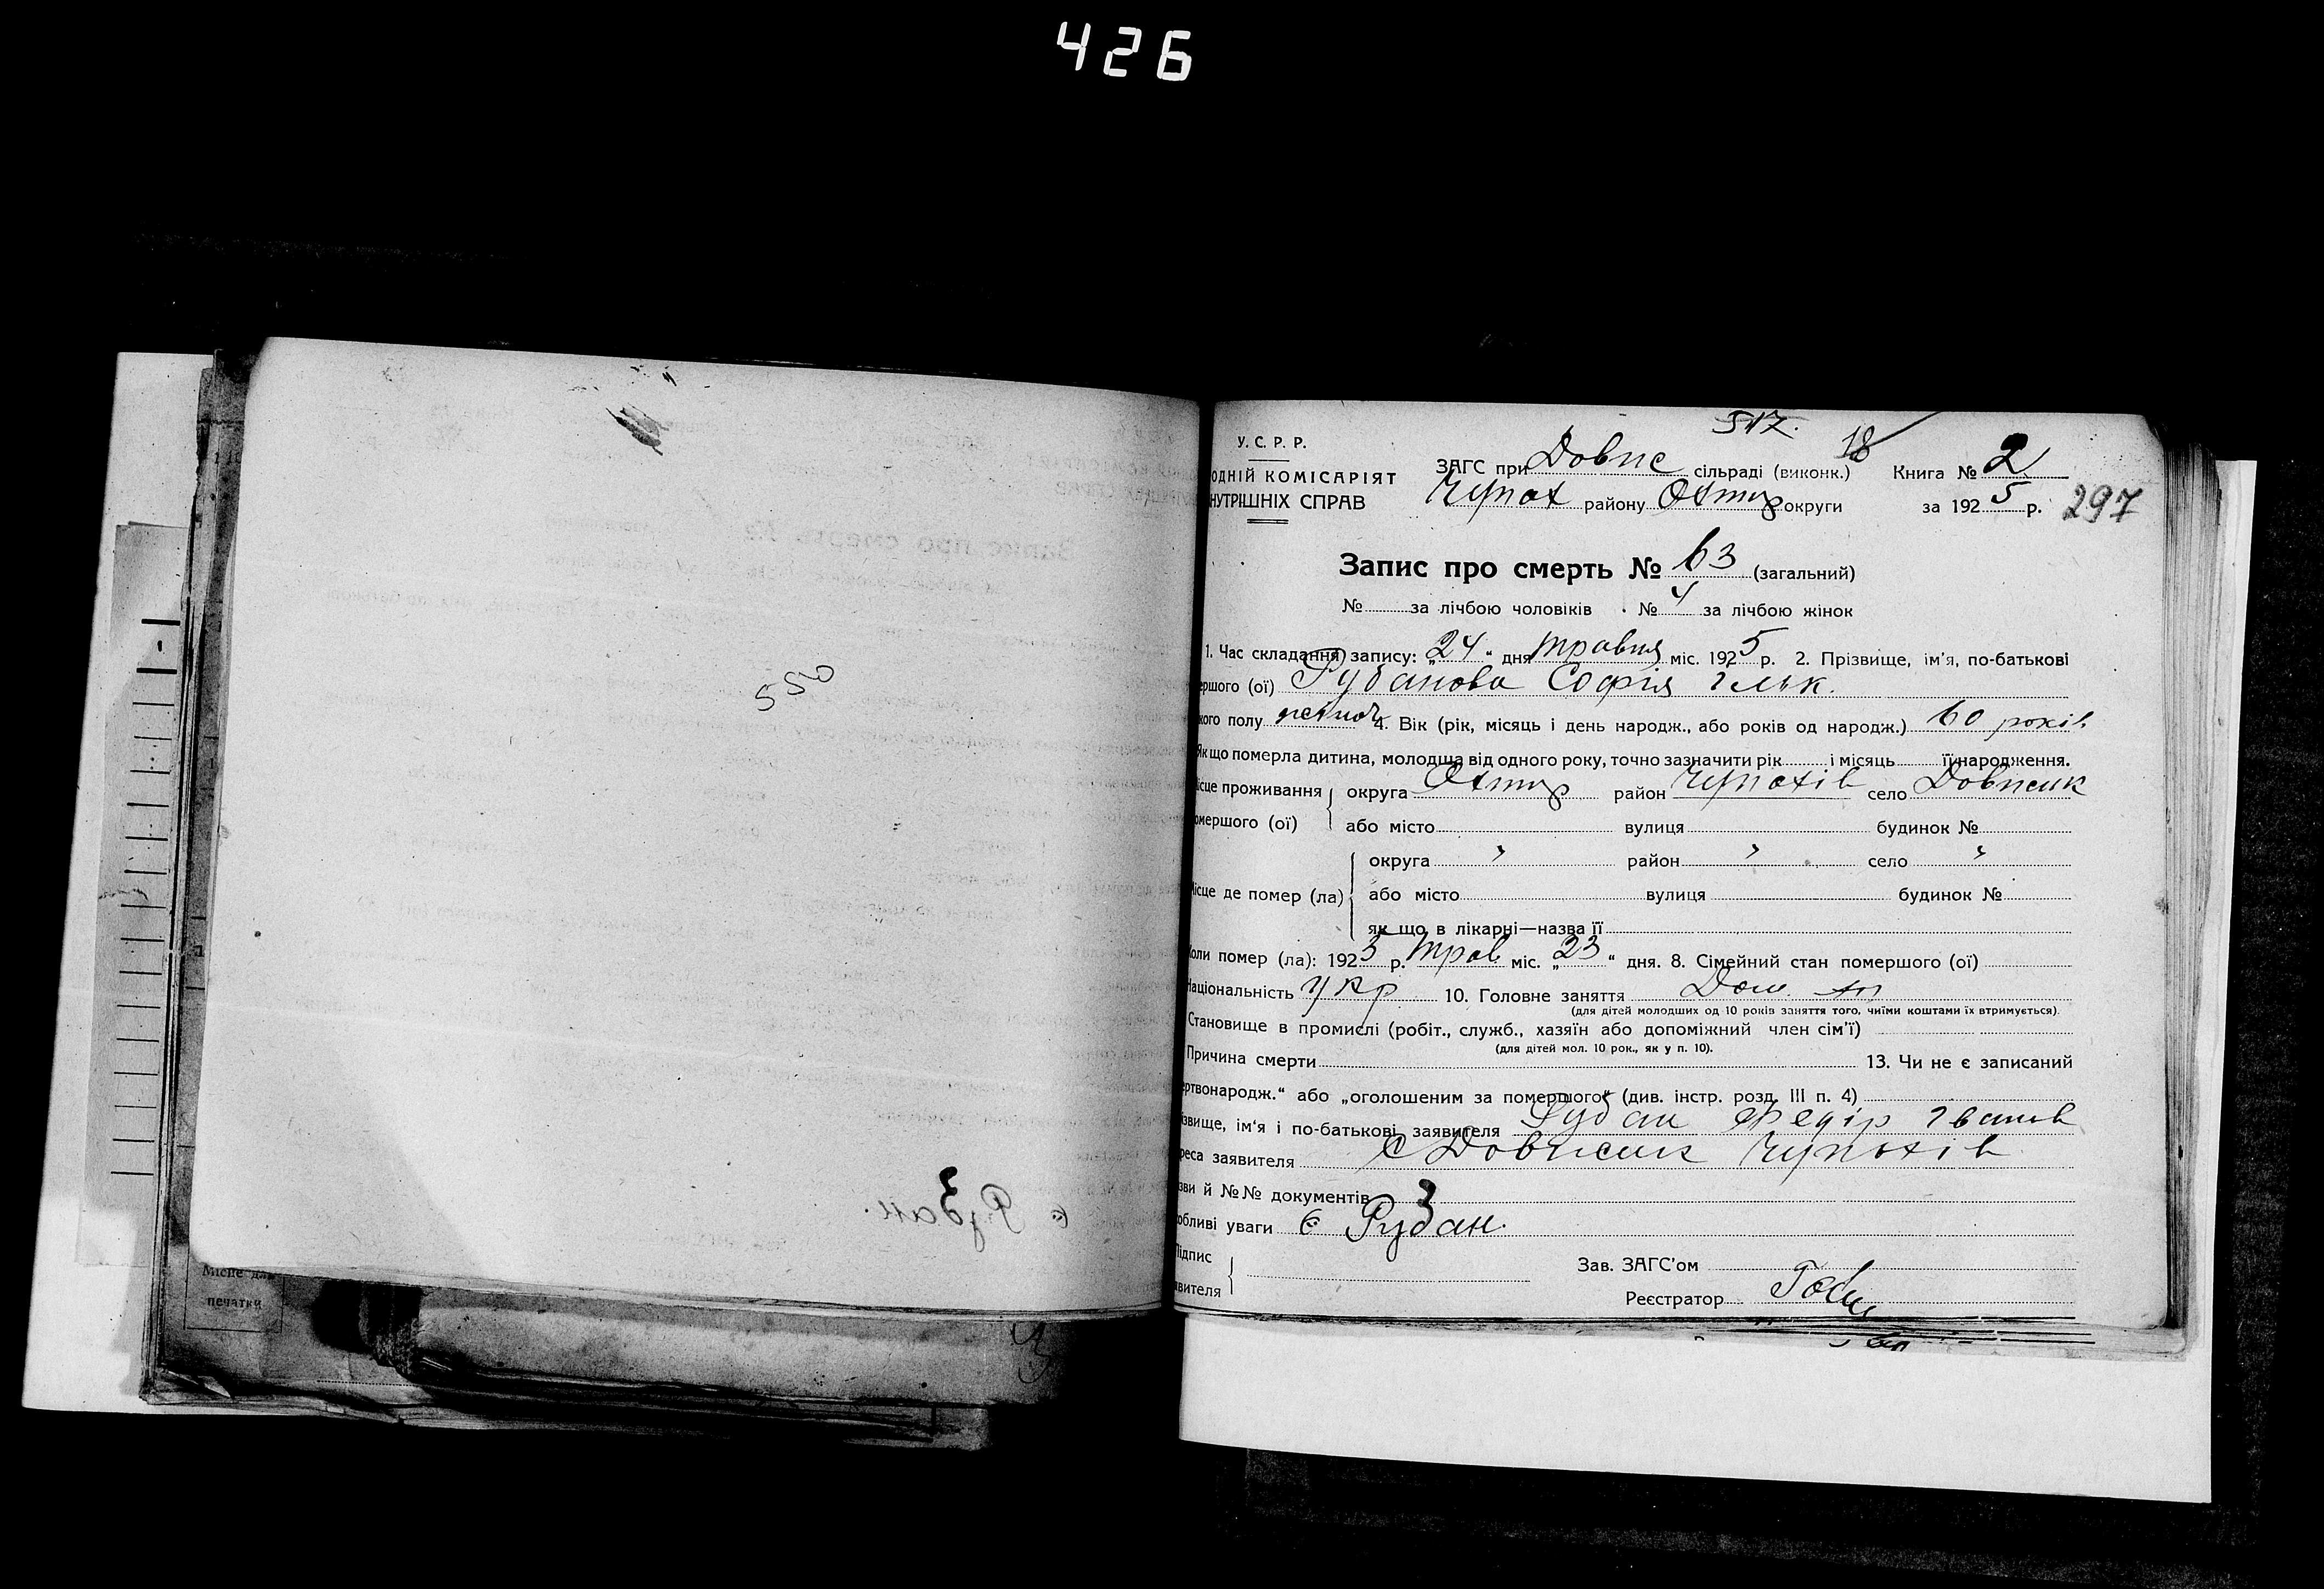 426
550
Місце для
печатки
517.
18
У. С. Р. Р.
ОДНІЙ КОМІСАРІЯТ
НУТРІШНІХ СПРАВ
ЗАГС при Довпс сільраді (виконк.) Книга № 2
Чупах району Охтир округи за 1925 р. 297
Запис про смерть № 63 (загальний)
№ за лічбою чоловіків № 4 за лічбою жінок
1. Час складання запису: „24" дня травня міс. 1925 р. 2. Прізвище, ім'я, по-батькові
ершого (ої) Рубанова Софія Ільк.
кого полу 4. Вік (рік, місяць і день народж., або років од народж.) 60 років
Як що померла дитина, молодша від одного року, точно зазначити рік і місяць її народження.
ісце проживання округа Охтир район Чупахів село
омершого (ої) або місто вулиця будинок №
округа " район " село "
ісце де помер (ла) або місто вулиця будинок №
як що в лікарні—назва її
оли помер (ла): 1925 р. трав. міс. „23" дня. 8. Сімейний стан помершого (ої)
Національність Укр 10. Головне заняття Дом.
(для дітей молодших од 10 років заняття того, чиїми коштами їх втримується).
Становище в промислі (робіт., служб., хазяїн або допоміжний член сім'ї)
(для дітей мол. 10 рок., як у п. 10).
Причина смерти 13. Чи не є записаний
ертвонародж." або „оголошеним за помершого" (див. інстр. розд. III п. 4)
звище, ім'я і по-батькові заявителя Рубан Федір Іванов
реса заявителя С Чупахів
зви й №№ документів
обливі уваги Є Рубан.
ідпис
явителя
Зав. ЗАГС'ом
Реєстратор